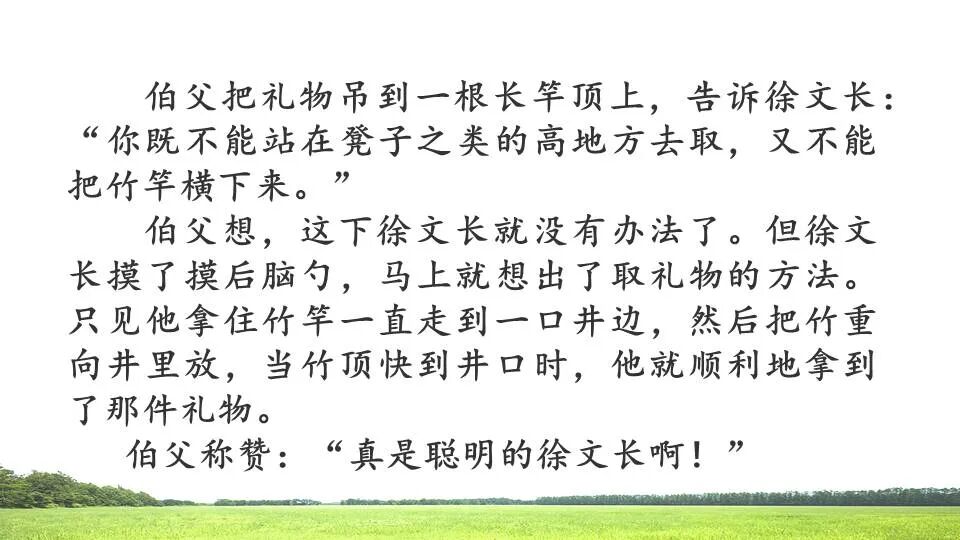 伯父把礼物吊到一根长竿顶上，告诉徐文长：
“你既不能站在凳子之类的高地方去取，又不能
把竹竿横下来。”
伯父想，这下徐文长就没有办法了。但徐文
长摸了摸后脑勺，马上就想出了取礼物的方法。
只见他拿住竹竿一直走到一口井边，然后把竹重
向井里放，当竹顶快到井口时，他就顺利地拿到
了那件礼物。
伯父称赞：“真是聪明的徐文长啊！”